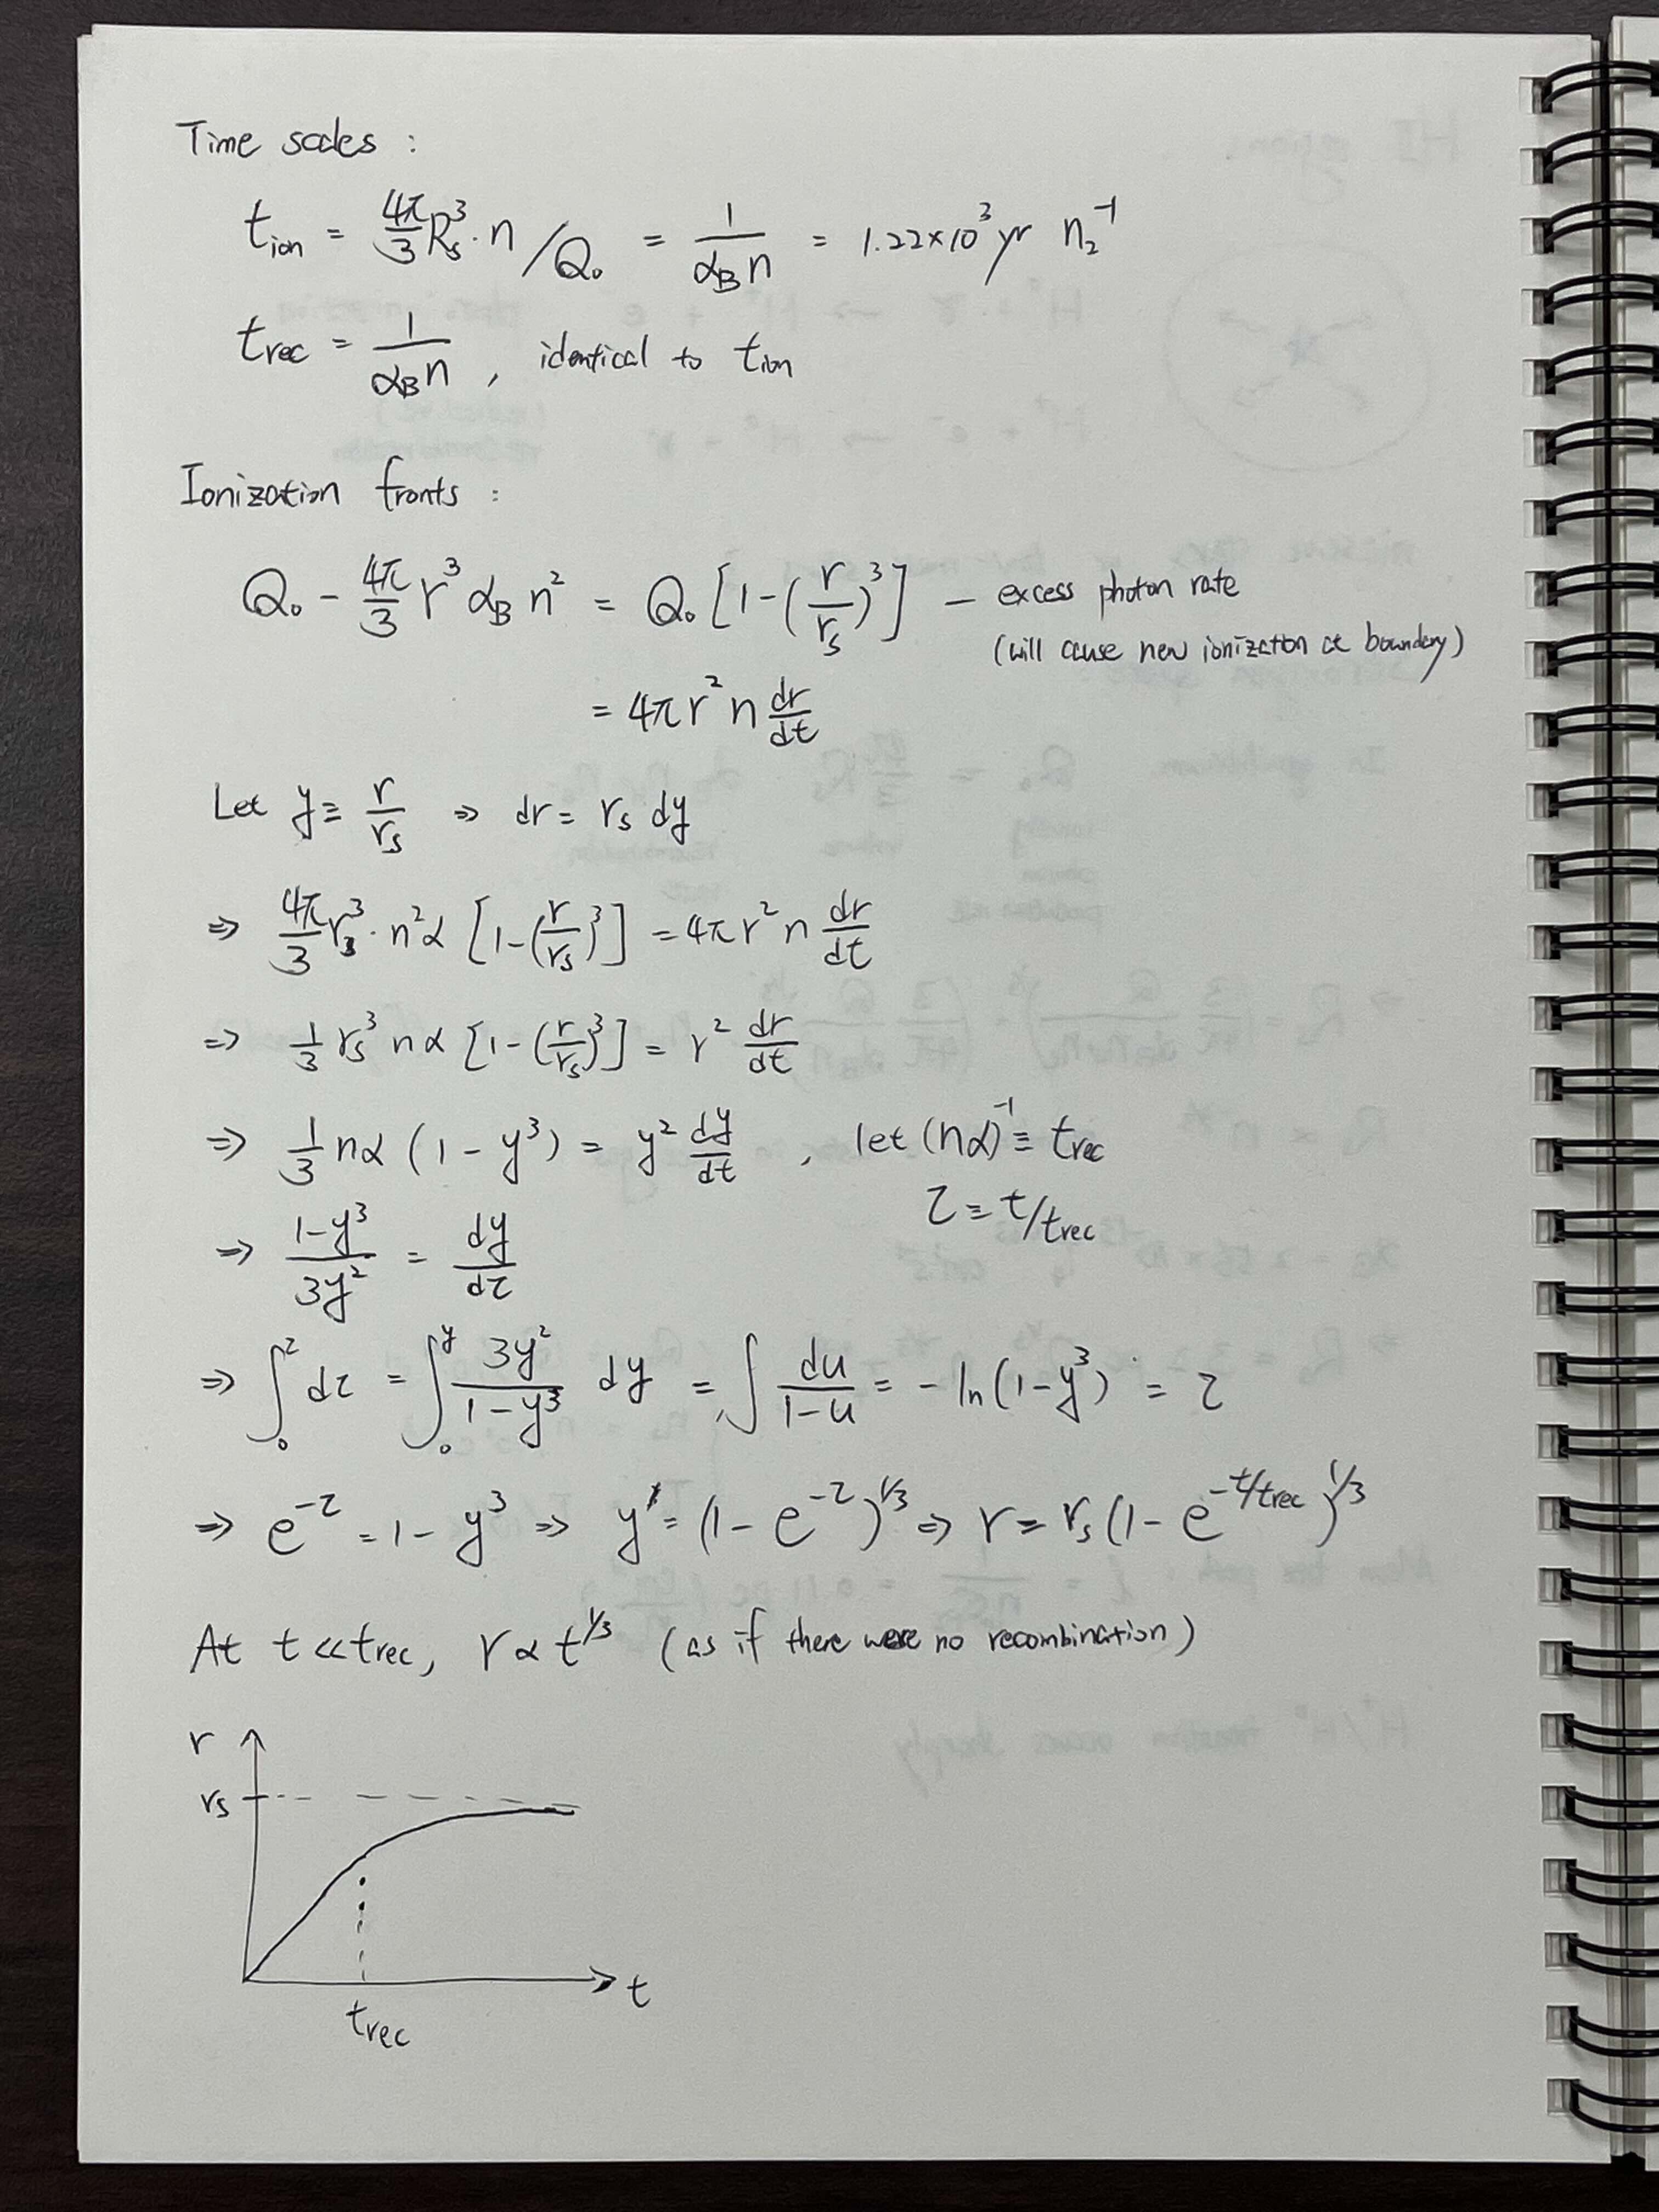 Time scales :
t_ion = 4π/3 R_s^3 · n / Q_0 = 1/(α_B n) = 1.22×10^3 yr n_2^-1
t_rec = 1/(α_B n) , identical to t_ion
Ionization fronts :
Q_0 - 4π/3 r^3 α_B n^2 = Q_0 [1-(r/r_s)^3] — excess photon rate
(will cause new ionization at boundary)
= 4π r^2 n dr/dt
Let y ≡ r/r_s ⇒ dr = r_s dy
⇒ 4π/3 r_s^3 · n^2 α [1-(r/r_s)^3] = 4π r^2 n dr/dt
⇒ 1/3 r_s^3 n α [1-(r/r_s)^3] = r^2 dr/dt
⇒ 1/3 n α (1 - y^3) = y^2 dy/dt , let (nα)^-1 ≡ t_rec
τ ≡ t/t_rec
⇒ (1-y^3)/(3y^2) = dy/dτ
⇒ ∫_0^τ dτ = ∫_0^y 3y^2/(1-y^3) dy = ∫ du/(1-u) = - ln(1-y^3) = τ
⇒ e^-τ = 1 - y^3 ⇒ y = (1 - e^-τ)^1/3 ⇒ r = r_s (1 - e^-t/t_rec)^1/3
At t ≪ t_rec, r ∝ t^1/3 (as if there were no recombination)
r
r_s
t
t_rec